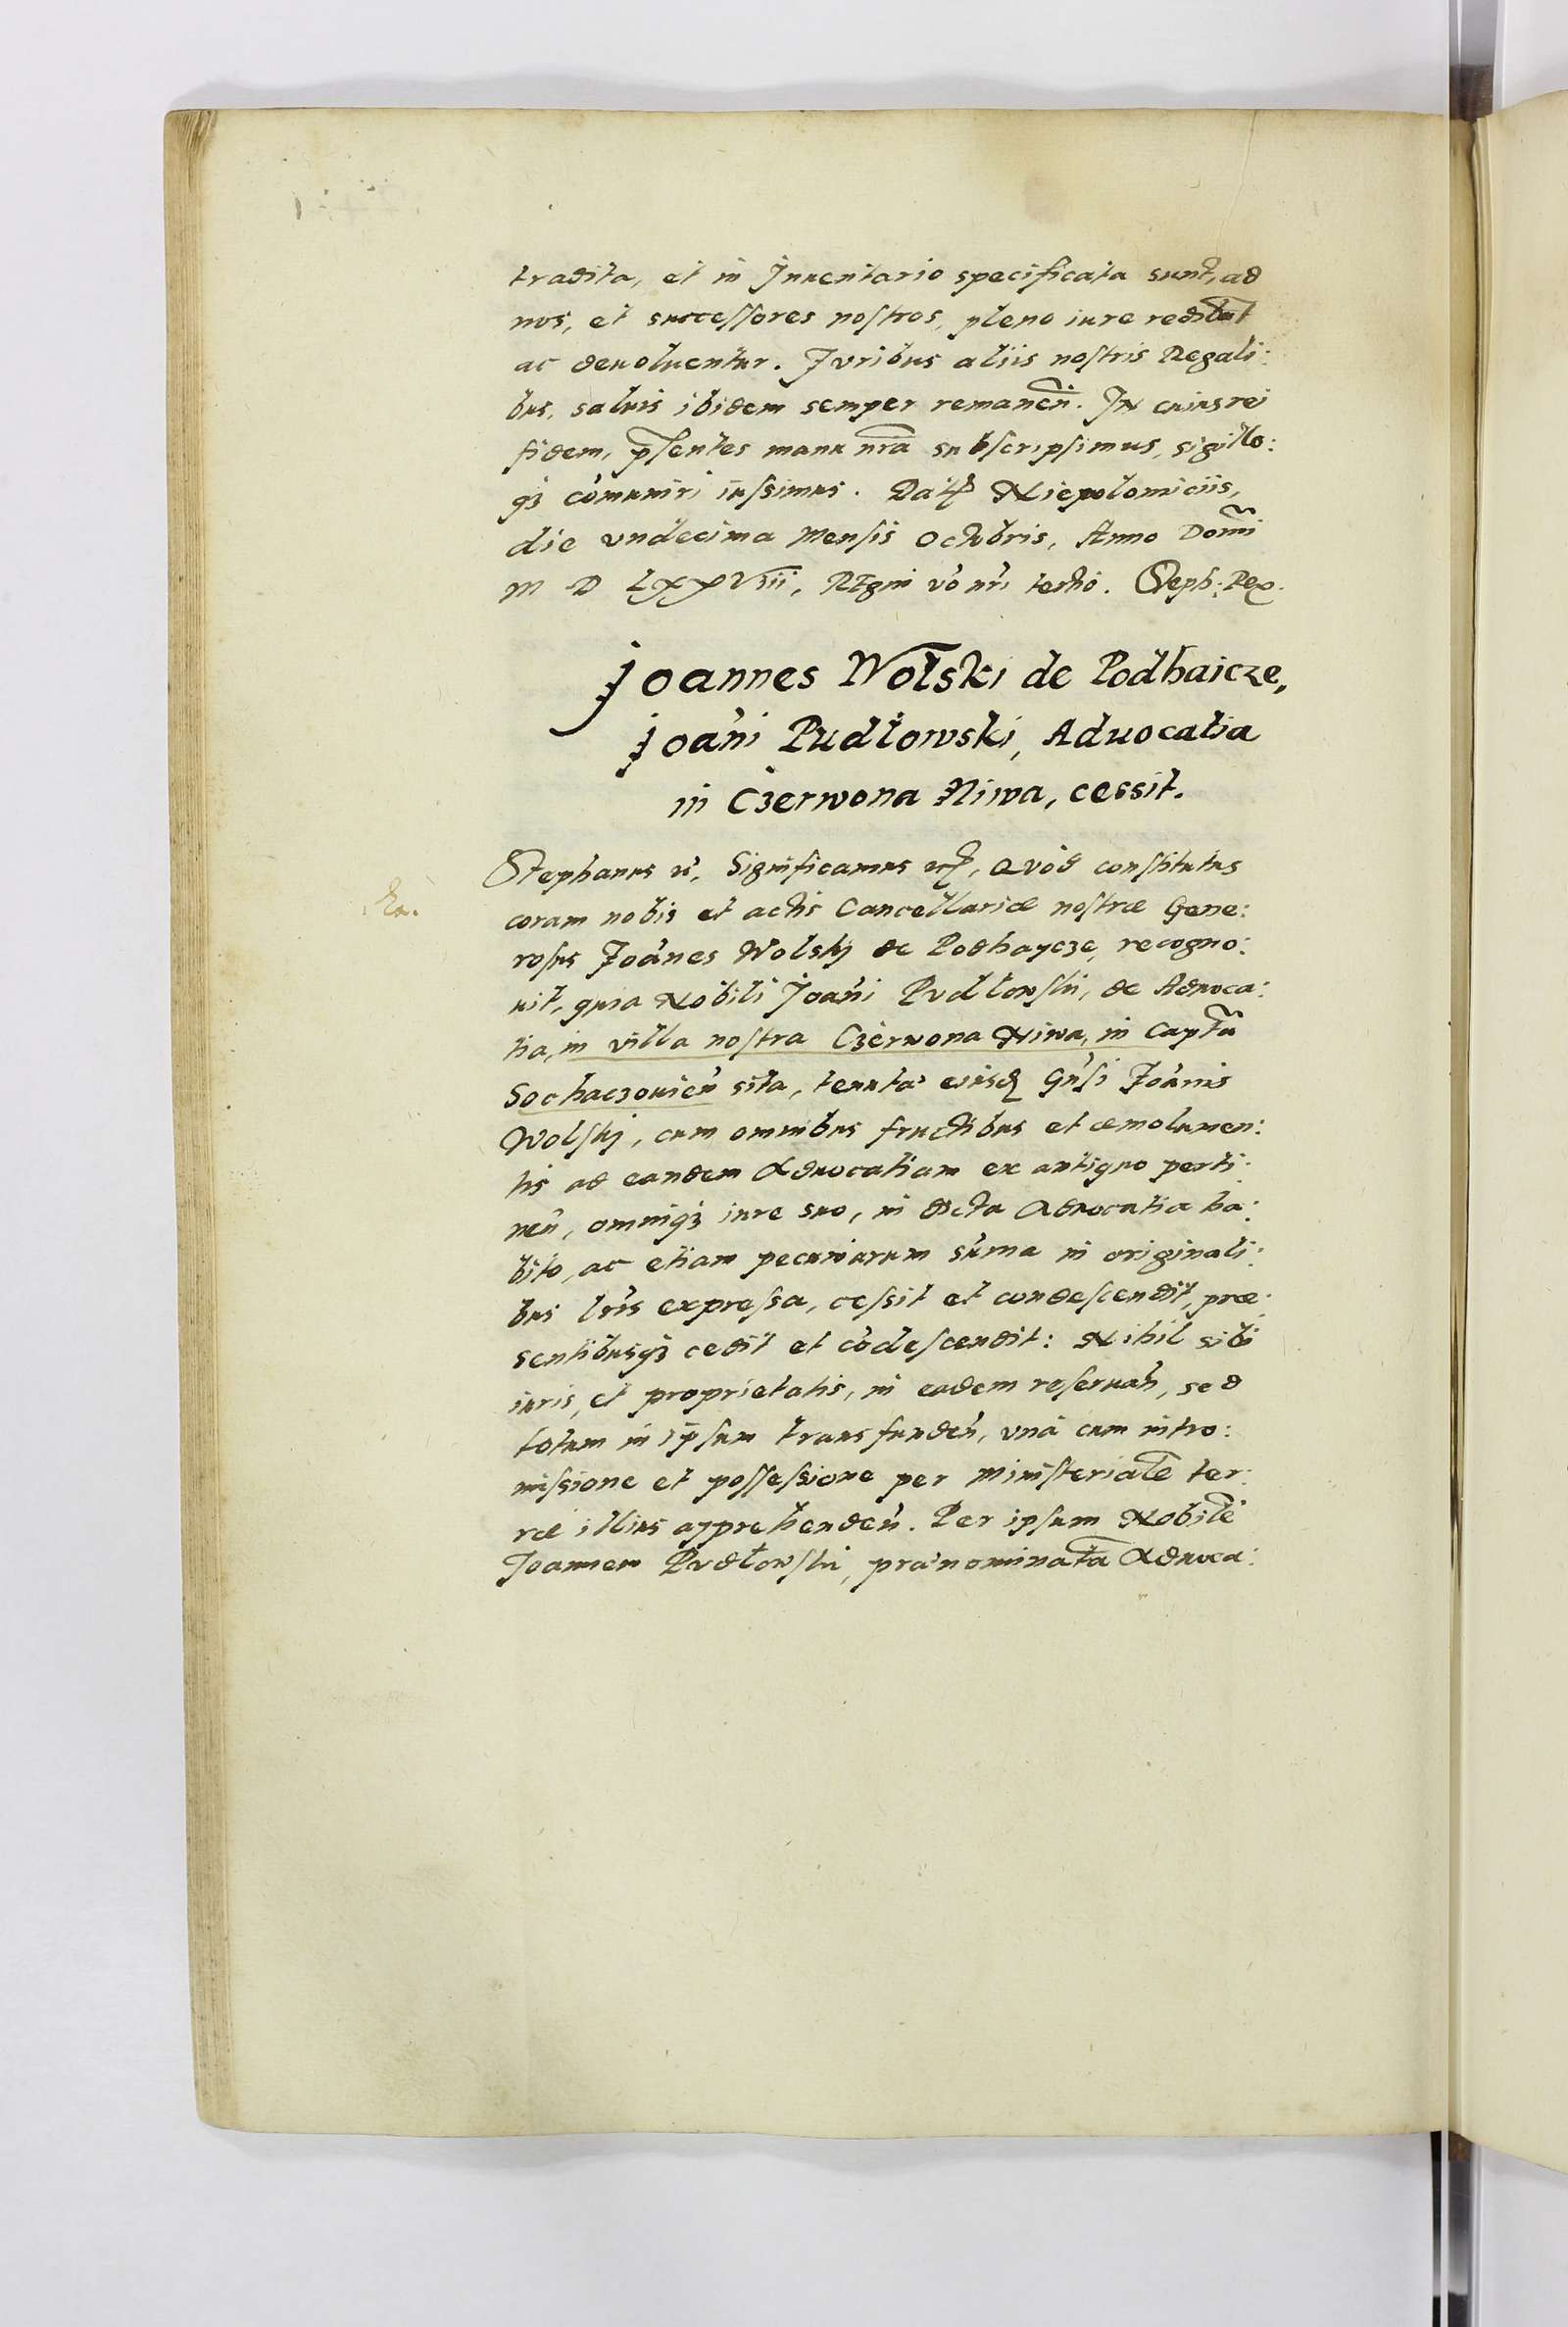 tradita, et in Inuentario specificata sunt, ad
nos, et successores nostros, pleno iure redibunt
ac deuoluentur. Iuribus aliis nostris Regali:
bus, saluis ibidem semper remanen̄. In cuius rei
fidem, p̄sentes manu nr̄a subscripsimus, sigillo:
qꝫ cōmuniri iussimus. Datꝭ Niepolomiciis,
die vndecima Mensis Octobris, Anno Domī
M D LXXViii, REgni vo nri tertio. Steph: Rex.
Joannes Wolski de Podhaicze,
Joan̄i Pudłowski, Aduocatia
in Czerwona Niwa, cessit.
Stephanus etc, Significamus etc, Quod constitutus
coram nobis et actis Cancellariæ nostræ Gene:
rosus Joan̄es Wolskj de Podhaycze, recogno:
uit, quia Nobili Joan̄i Pudłowski, de Aduoca:
tia, in villa nostra Czerwona Niwa, in Captū
Sochaczouien̄ sita, tenuta eiusd Gn̄si Joānis
Wolskj, cum omnibus fructibus et æmolumen:
tis ad eandem Aduocatiam ex antiquo perti:
nen̄, omniqꝫ iure suo, in dicta Aduocatia ha:
bito, ac etiam pecuniarum sūma in originali:
bus lr̄is expressa, cessit et condescendit, præ:
sentibusqꝫ cedit et cōdescendit: Nihil sibi
iuris, et proprietatis, in eadem reseruan̄, sed
totum in ipsum transfunden̄, vnà cum intro:
missione et possessione per Ministerialē ter:
ræ illius apprehenden̄. Per ipsum Nobilē
Joannem Pudłowski, prænominatā Aduoca: